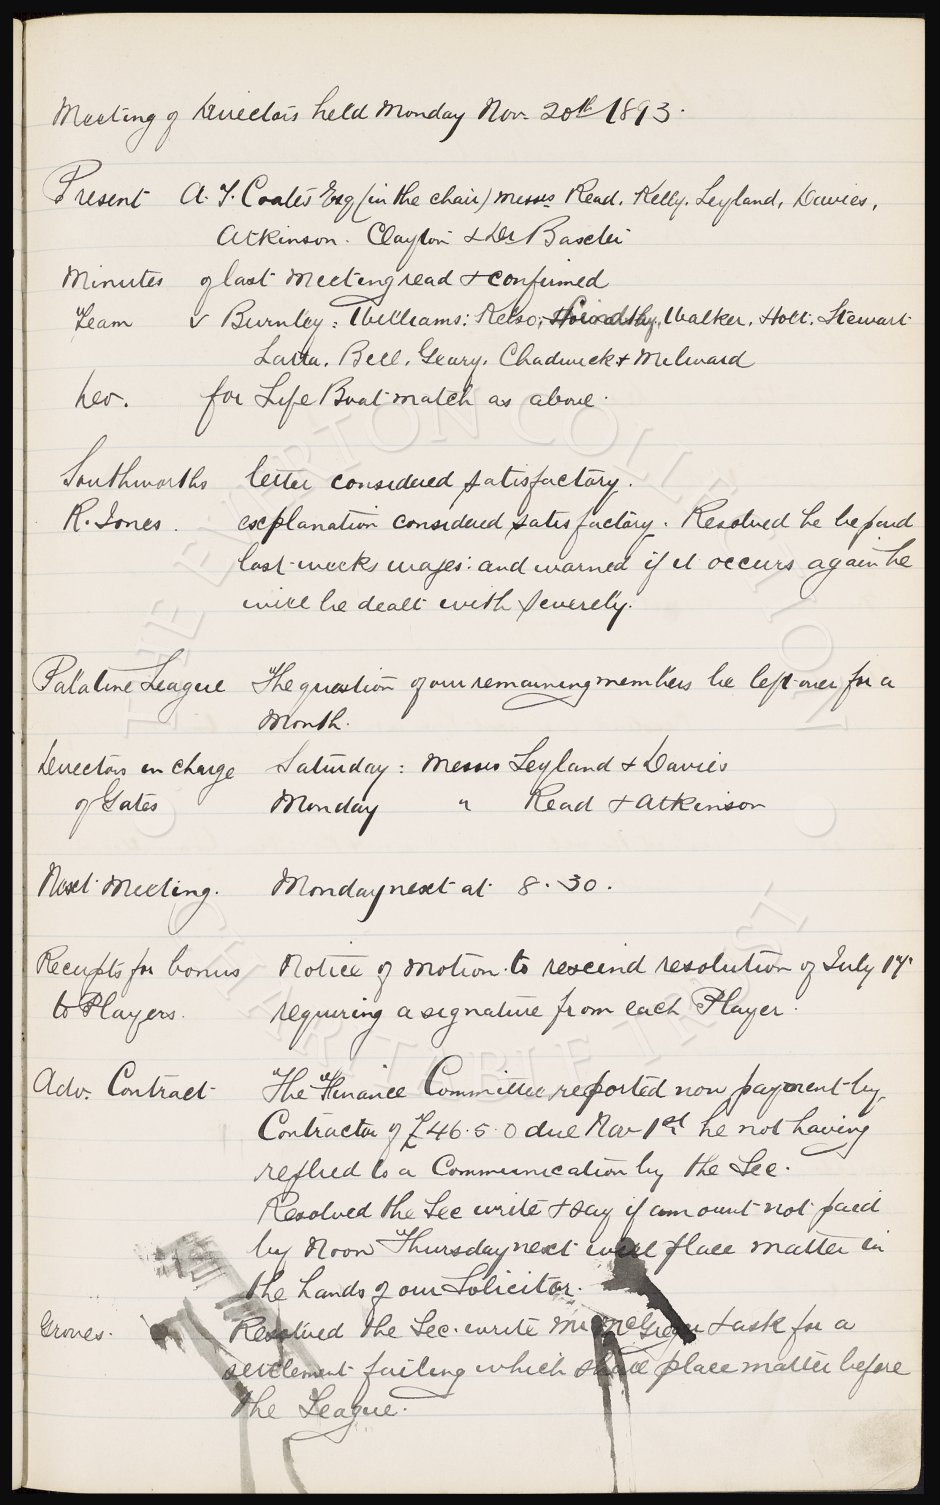 Meeting of Directors held Monday Nov. 20th 1893.
Present A. T. Coates Esq (in the chair) Messrs Read, Kelly, Leyland, Davies,
Atkinson. Clayton & Dr Baxter
Minutes of last Meeting read & confirmed
Team v Burnley: Williams: Kelso; Walker, Holt, Stewart
Latta, Bell, Geary, Chadwick & Milward
Leo. for Life Boat match as above.
Southworths letter considered satisfactory.
R. Jones. explanation considered satisfactory. Resolved he be paid
last weeks wages: and warned if it occurs again he
will be dealt with severely.
Palatine League The question of our remaining members be left over for a
Month.
Directors in charge Saturday: Messrs Leyland & Davies
of Gates Monday " Read & Atkinson
Next Meeting. Monday next at 8.30.
Receipts for bonus Notice of motion to rescind resolution of July 17
to Players. requiring a signature from each Player.
Adv. Contract The Finance Committee reported non payment by
Contractor of £46.5.0 due Nov 1st he not having
replied to a Communication by the Sec.
Resolved the Sec write & say if amount not paid
by Noon Thursday next will place matter in
the hands of our Solicitor.
Groves. Resolved the Sec. write Mr McGregor & ask for a
settlement failing which shall place matter before
the League.
THE EVERTON COLLECTION
CHARITABLE TRUST